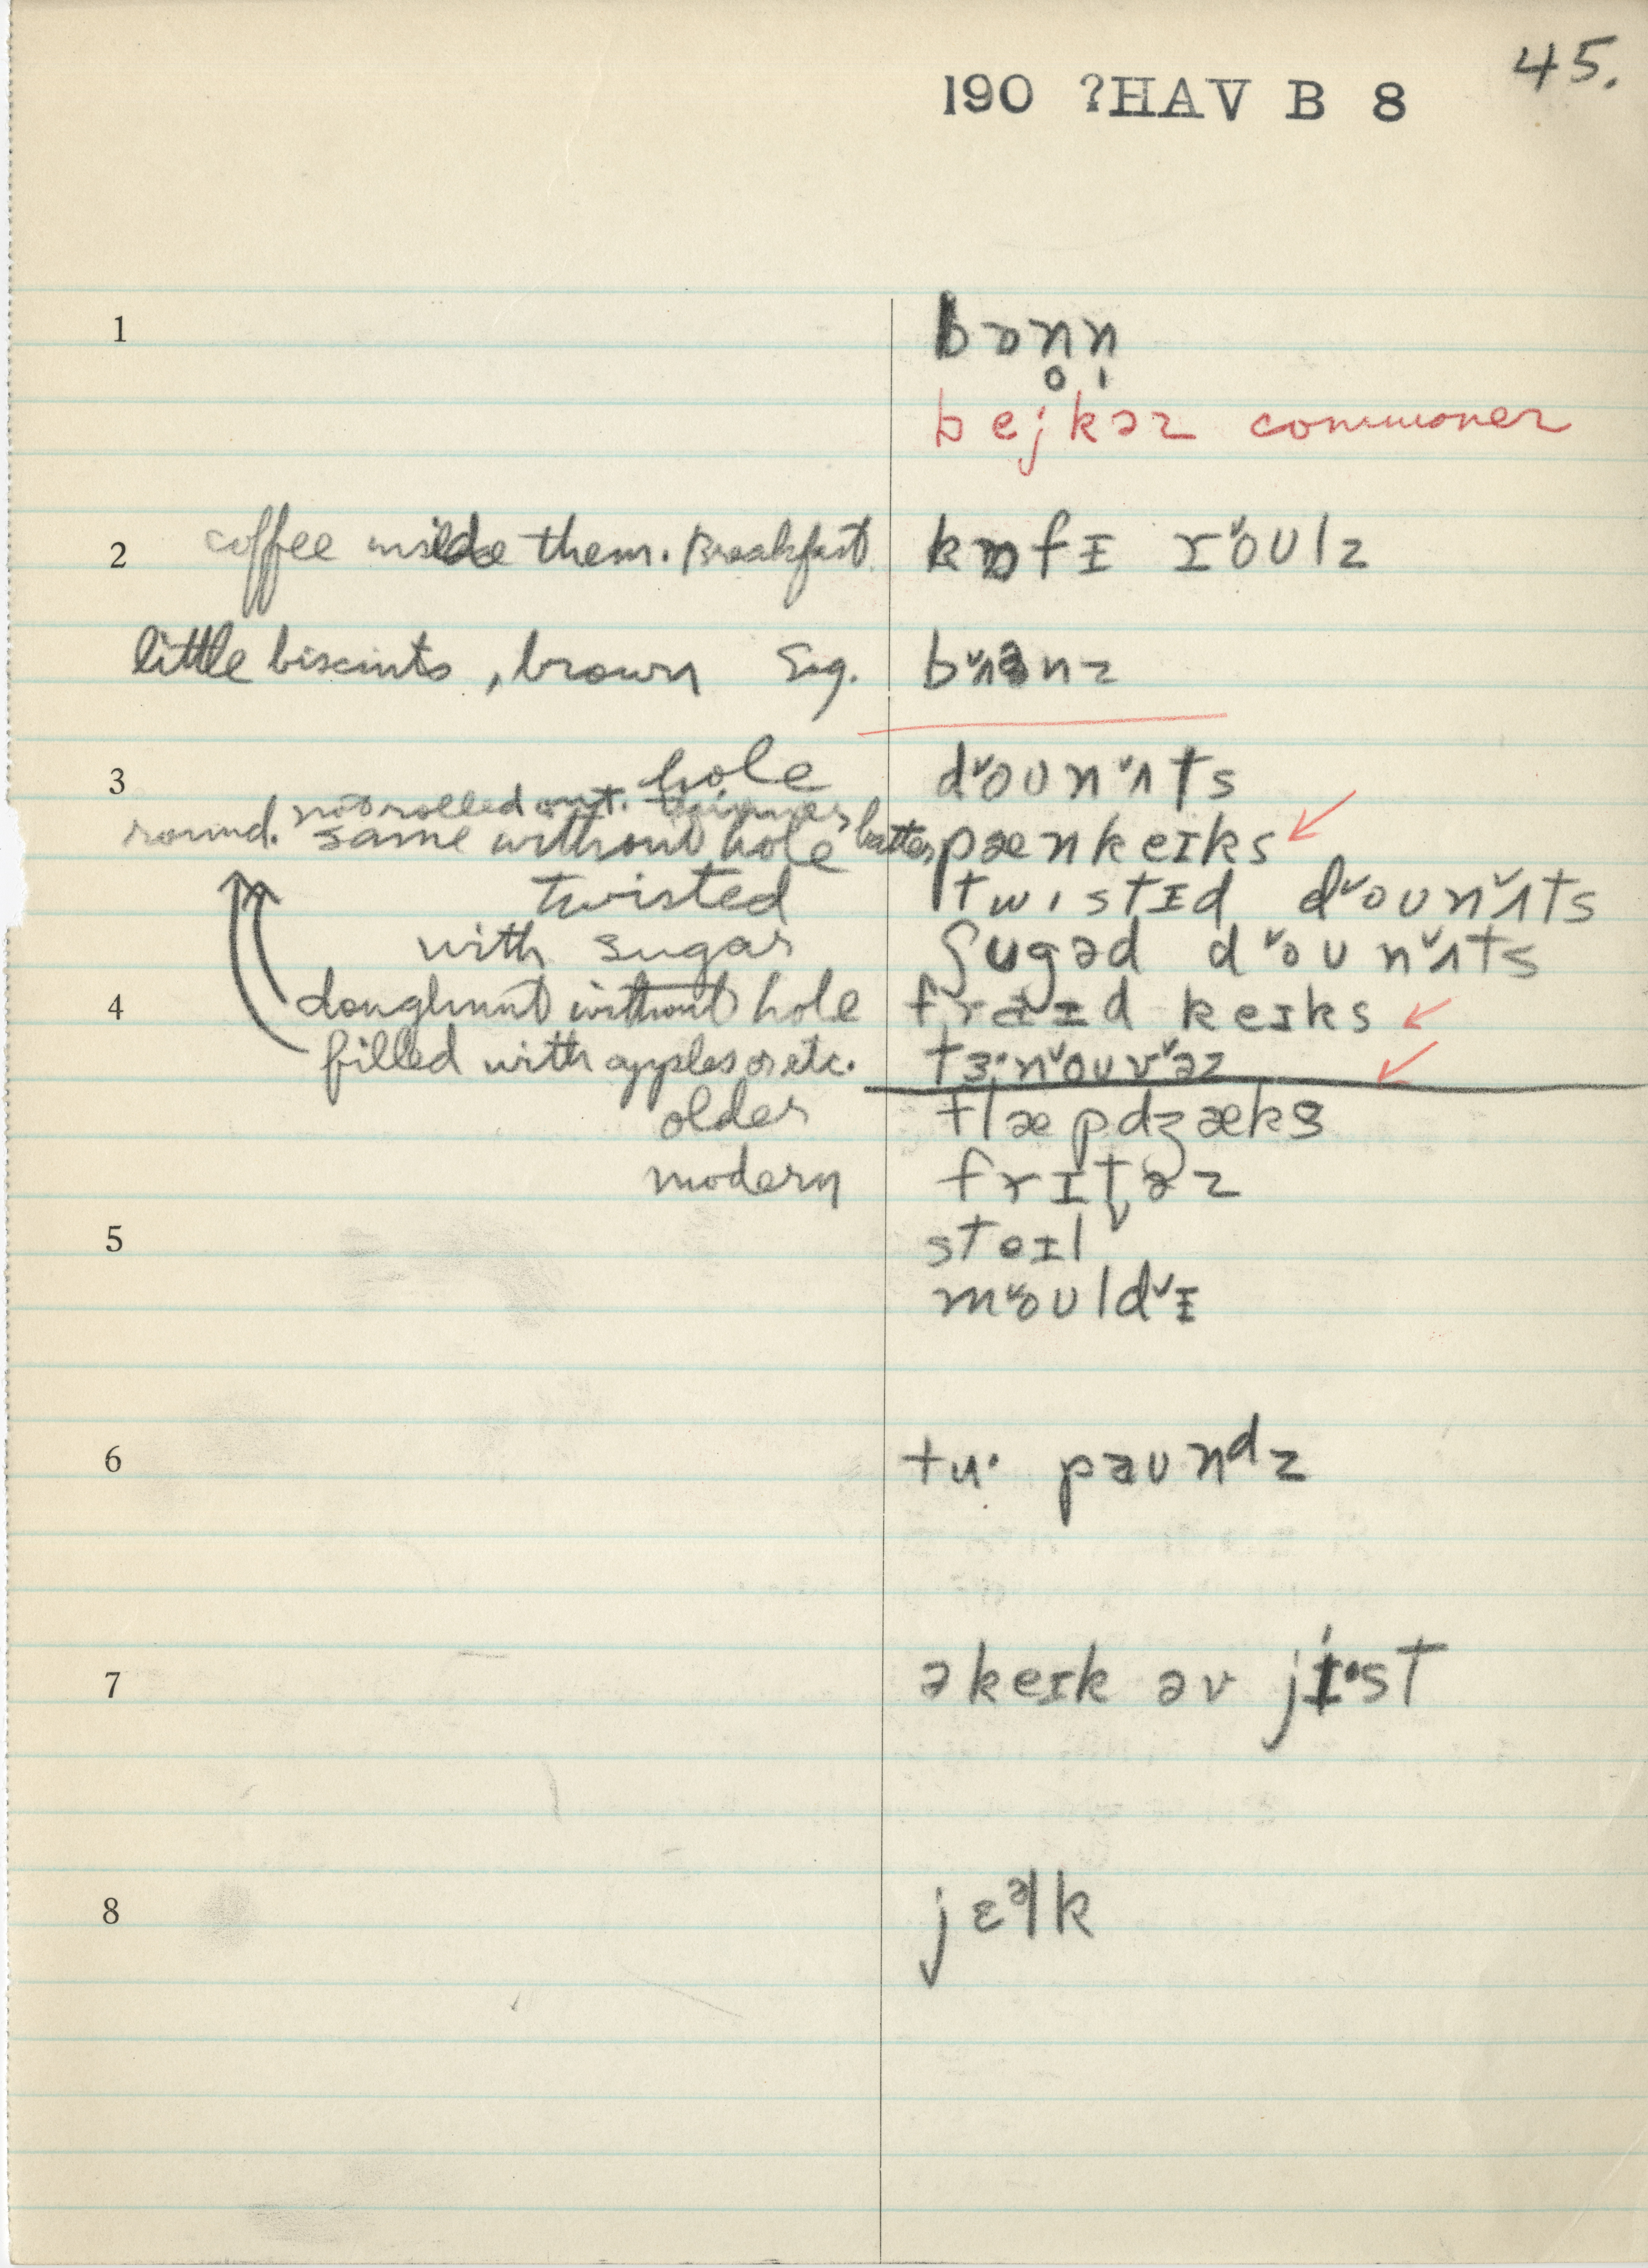 45.
190 ?HAV B 8
1 bɒn̥n̩
bejkəɹ commoner
2 coffee inside them. Breakfast. kɒfɪ ɹo˅ʊlz
little biscuits, brown Sug. bʌ˅nz
3 hole do˅ʊnʌ˅ts
not rolled out. thinner batter
round. same without hole pænkeɪks
twisted twɪstɪd do˅ʊnʌ˅ts
with sugar ʃʊgəd do˅ʊnʌ˅ts
4 doughnut without hole fraɪd keɪks
filled with apples or etc. tɜ·no˅ʊvə˅z
older flæpdʒæks
modern frɪt̬əz
5 stɛɪl
mo˅ʊldɪ˅
6 tu· paʊnᵈz
7 ə keɪk əv ji·st
8 jɛᵊlk